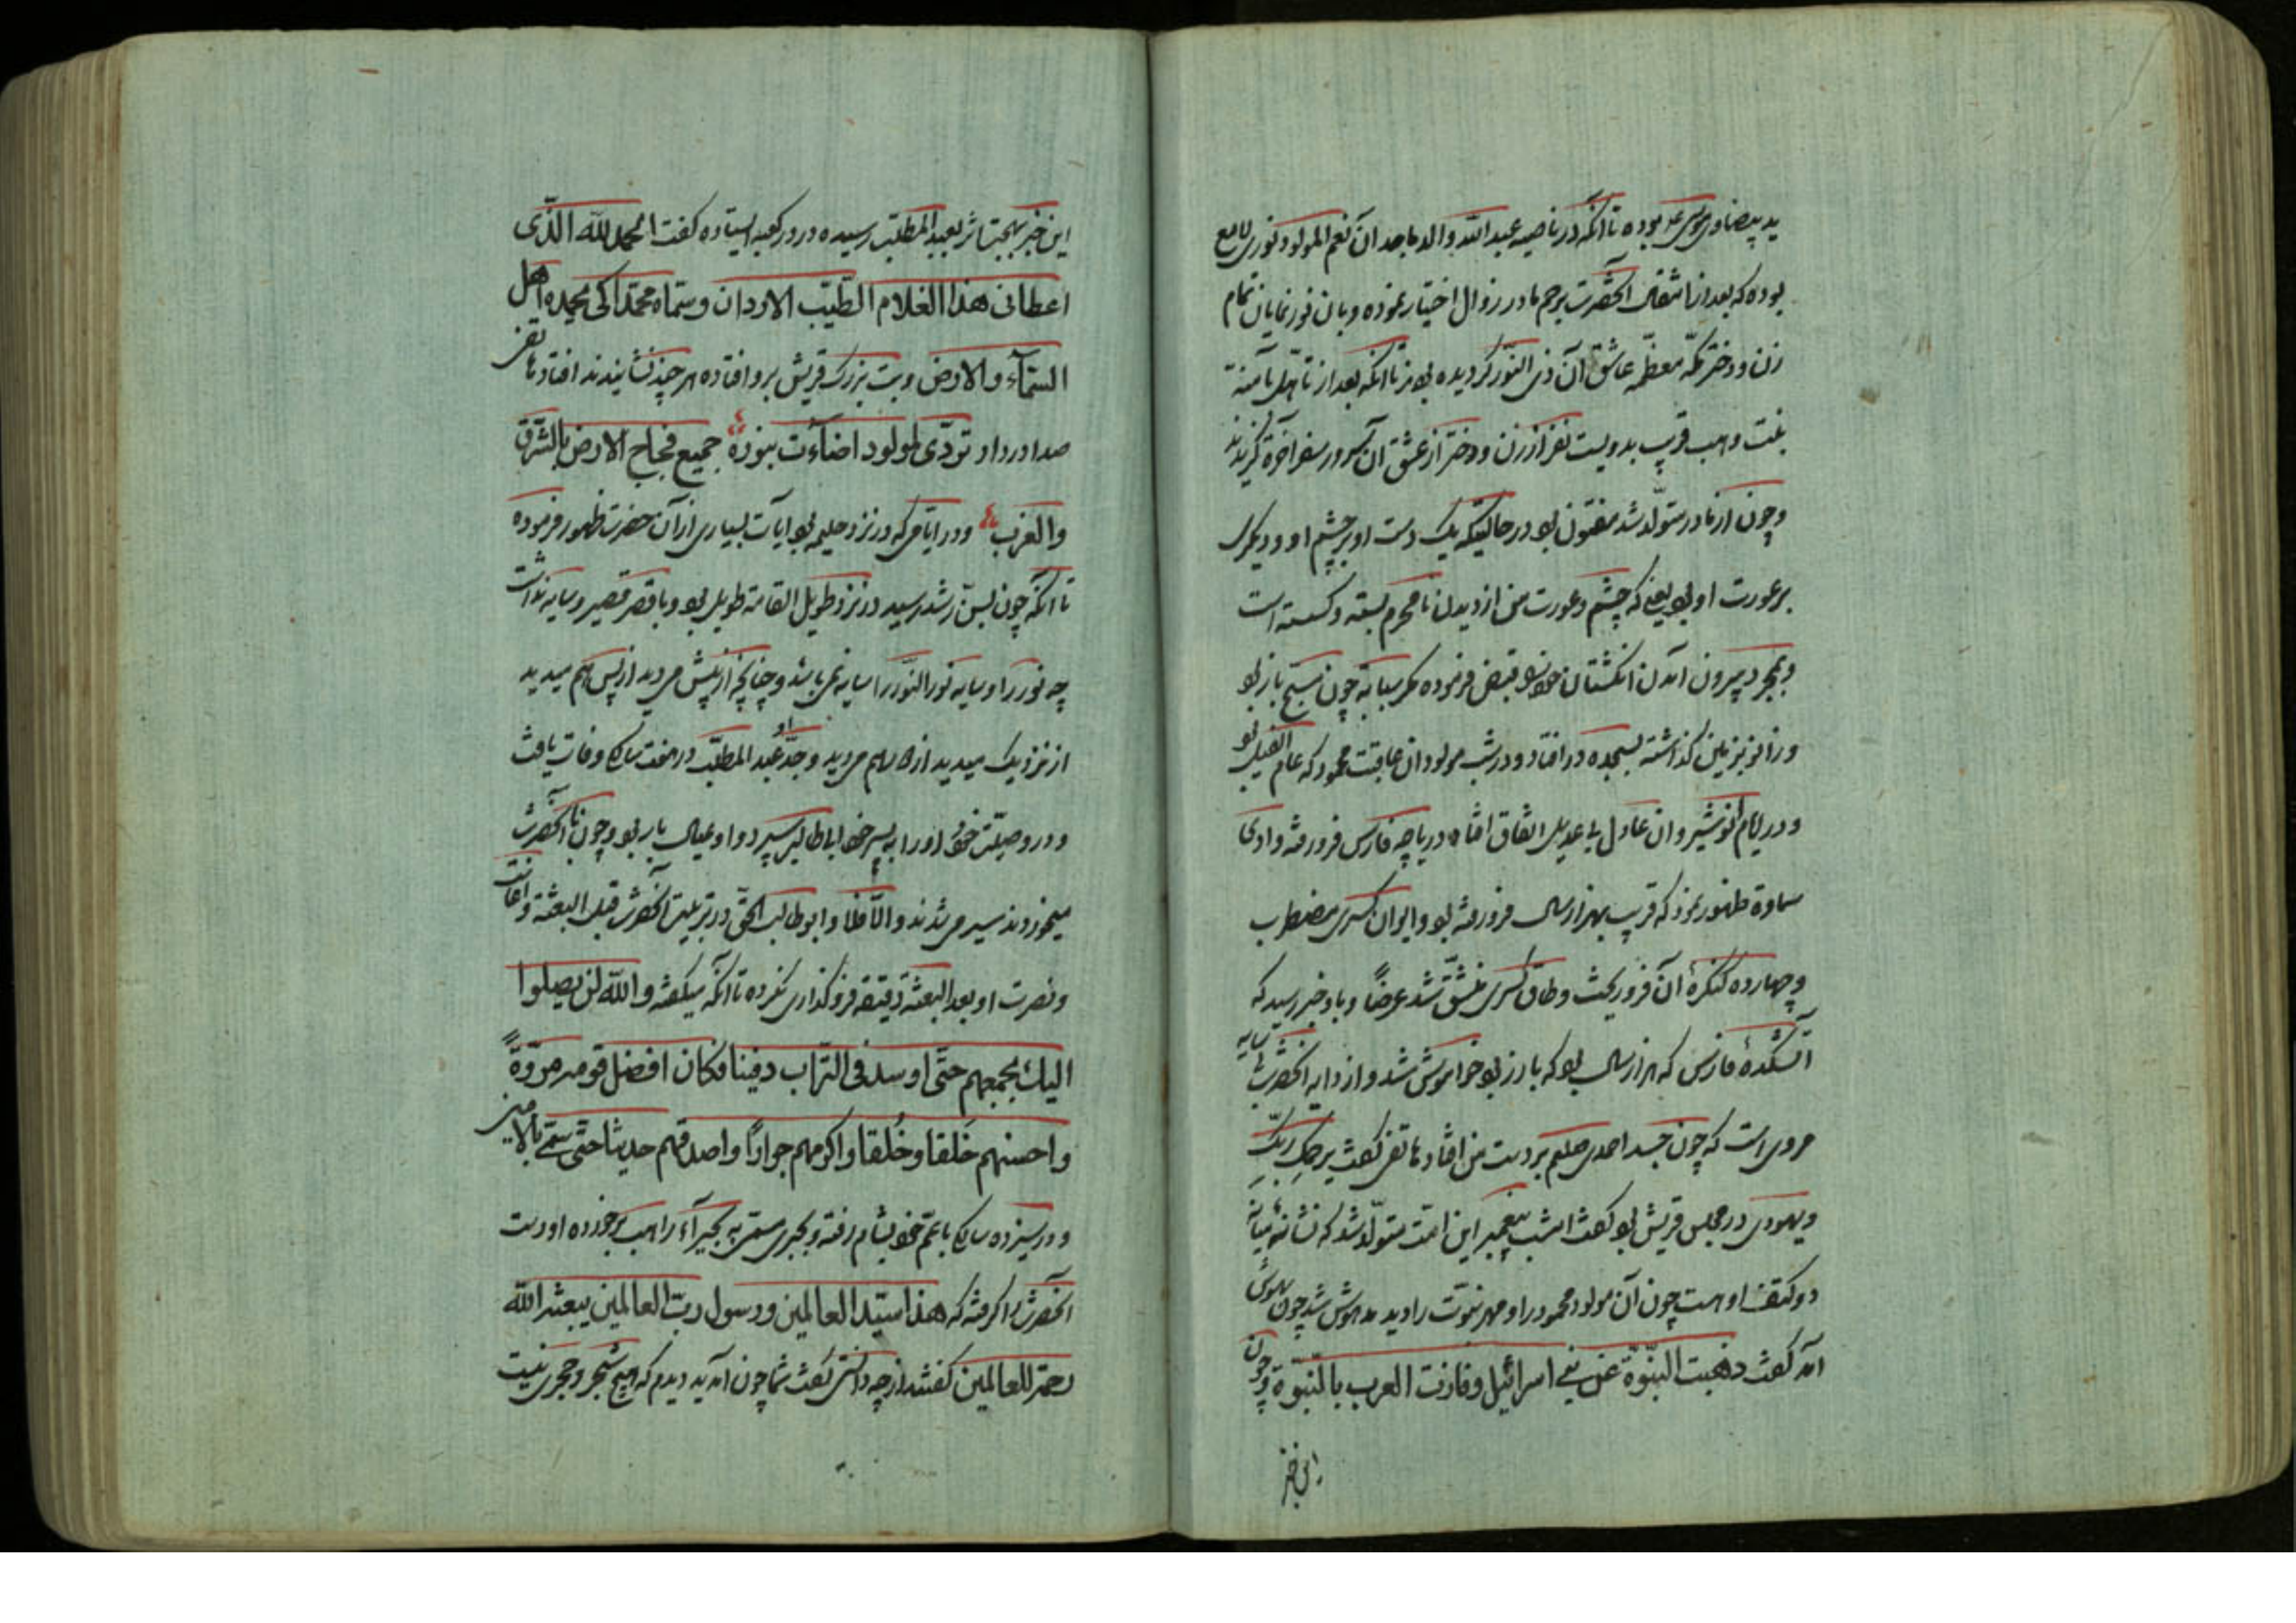 ید بیضاوی موسی عم بوده تا آنکه در ناصیه عبد الله والد ماجد آن نعم المولود نوری لامع
بوده که بعد از انتقال آنحضرت برحم مادر زوال اختیار نموده و بآن نور نمایان تمام
زن و دختر مکه معظمه عاشق آن ذی النور گردیده بودند تا آنکه بعد از تأهل بآمنه
بنت وهب قریب بدویست نفر از زن و دختر از عشق آن سرور سفر آخرة گزیدند
و چون از مادر متولد شد مختون بود در حالتیکه یک دست او بر چشم او و دیگری
بر عورت او بود یعنی که چشم و عورت من از دیدن نامحرم بسته و گسسته است
و بمجرد بیرون آمدن انگشتان خود را قبض فرموده مگر سبابه چون مسبح باز بود
و زانو بزمین گذاشته بسجده در افتاد و در شب مولود آن عاقبت محمود که عام الفیل بود
و در ایام انوشیروان عادل بی عدیل اتفاق افتاد دریاچه فارس فرو رفته و وادی
سماوة ظهور نمود که قریب بهزار سال فرو رفته بود و ایوان کسری مضطرب
و چهارده کنگرهٔ آن فرو ریخت و طاق کسری منشق شد عرضاً و باو خبر رسید که
آتشکدهٔ فارس که هزار سال بود که بارز بود خواموش شد و از دایه آنحضرت
مروی است که چون جسد احمدی صلعم بر دست من افتاد هاتفی گفت یرحمک ربک
و یهودی در مجلس قریش بود گفت امشب پیغمبر این امت متولد شد که نشانهٔ میانه
دو کتف او هست چون آن مولود محمود را و مهر نبوّت را دید مدهوش شد چون بهوش
آمد گفت ذهبت النبّوّة عن بنی اسرائیل و فازت العرب بالنبّوّة و چون
این خبر
این خبر بهجت اثر بعبد المطلب رسیده در در کعبه ایستاده گفت الحمد لله الذّی
اعطانی هذا الغلام الطّیّب الاردان و سمّاه محمّدا کی یحمده اهل
السّمآء و الارض و بت بزرگ قریش برو افتاده هر چند نشانیدند افتاد هاتفی
صدا در داد تردّی لمولود اضاءت بنوره جمیع فجاج الارض بالشّرق
و الغرب و در ایامی که در نزد حلیمه بود آیات بسیاری از آن حضرت ظهور فرموده
تا آنکه چون بسن رشد رسید در نزد طویل القامة طویل بود و با قصر قصیر و سایه نداشت
چه نور را و سایه نور النّور را سایه نمی باشد و چنانچه از پیش میدید از پس هم میدید
از نزدیک میدید از دور هم میدید و جدّ او عبد المطلب در هفت سالگی وفات یافت
و در وصیت خود او را به پسر خود ابا طالب سپرد و او عیال بار بود و چون با آنحضرت
میخوردند سیر میشدند و الّا فلا و ابو طالب الحق در تربیت آنحضرت قبل البعثة و اعانت
و نصرت او بعد البعثه دقیقه فرو گذاری نکرده تا آنکه میگفته و الله لن یصلوا
الیك بجمعهم حتّی اوسد فی التّراب دفینا فکان افضل قومه مروّةً
و احسنهم خَلقا و خُلقا و اکرمهم جوارًا و اصدقهم حدیثا حتّی سمّی بالامین
و در سیزده سالگی با عم خود بشام رفته و بحبری مسمی به بحیرآء راهب برخورده او دست
آنحضرت را گرفته که هذا سیّد العالمین و رسول ربّ العالمین یبعثه الله
رحمة للعالمین گفتند از چه دانستی گفت شما چون آمدید دیدم که هیچ شجر و حجری نیست